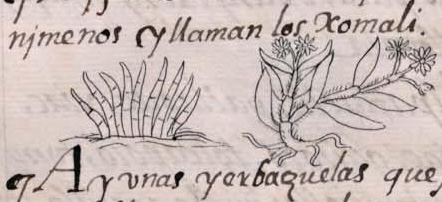 nimenos yllaman los xomali.
¶ Ay vnas yerbaçuelas que